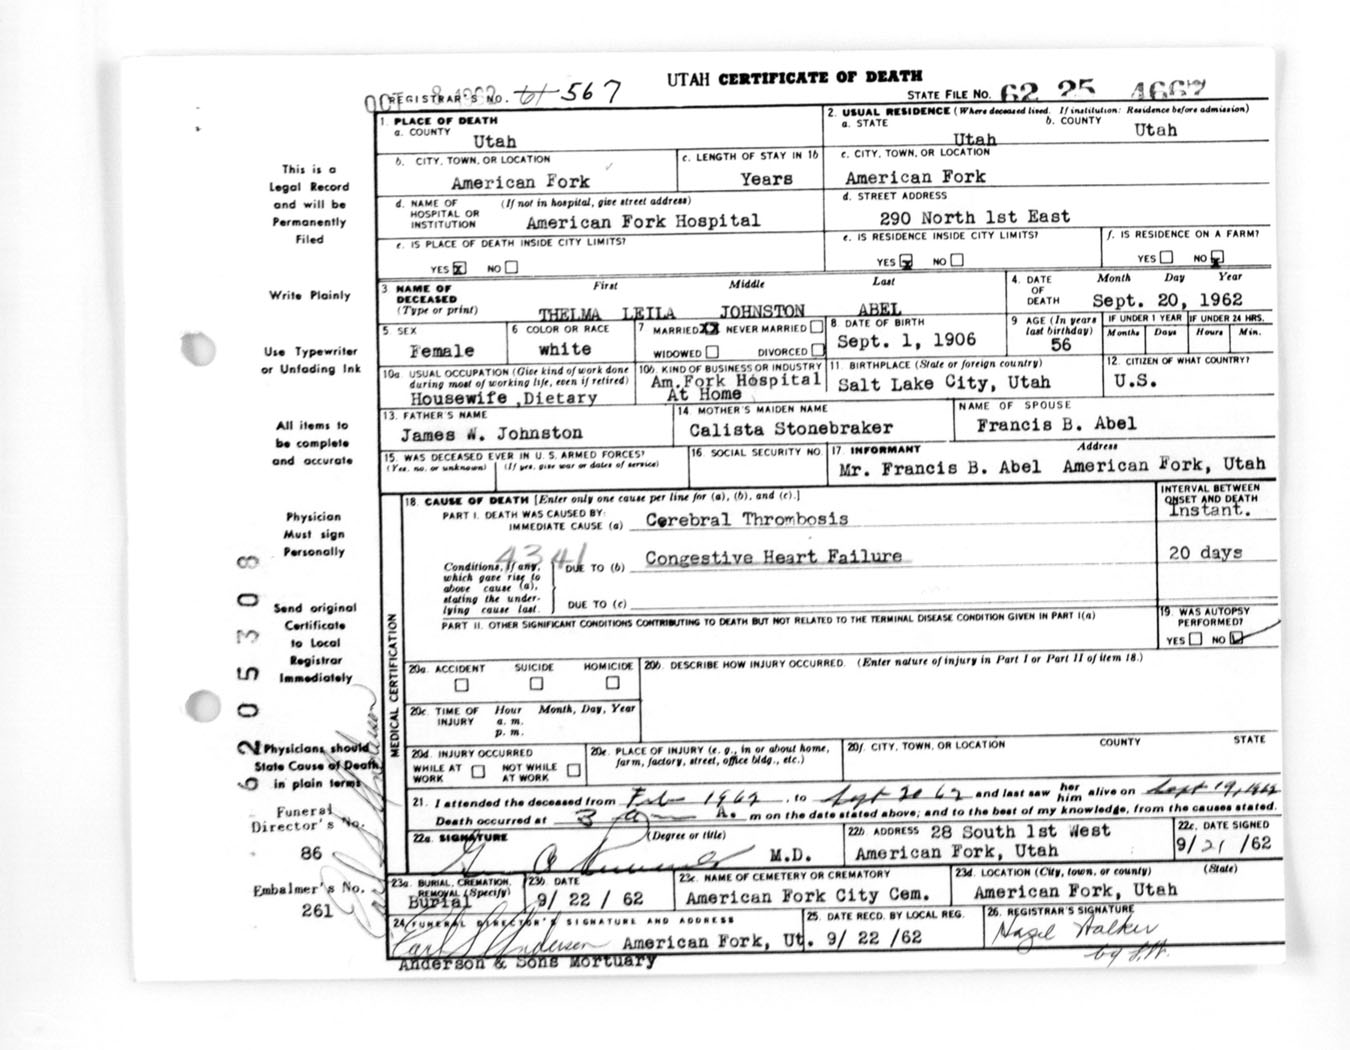 UTAH CERTIFICATE OF DEATH
REGISTRAR'S NO. 567
STATE FILE NO. 62 25 4667
1. PLACE OF DEATH
a. COUNTY
Utah
2. USUAL RESIDENCE (Where deceased lived. If institution: Residence before admission)
a. STATE
Utah
b. COUNTY
Utah
b. CITY, TOWN, OR LOCATION
American Fork
c. LENGTH OF STAY IN 1b
Years
c. CITY, TOWN, OR LOCATION
American Fork
d. NAME OF HOSPITAL OR INSTITUTION
(If not in hospital, give street address)
American Fork Hospital
d. STREET ADDRESS
290 North 1st East
e. IS PLACE OF DEATH INSIDE CITY LIMITS?
YES X NO
e. IS RESIDENCE INSIDE CITY LIMITS?
YES X NO
f. IS RESIDENCE ON A FARM?
YES NO X
3 NAME OF DECEASED
(Type or print)
First Middle Last
THELMA LEILA JOHNSTON ABEL
4. DATE OF DEATH
Month Day Year
Sept. 20, 1962
5 SEX
Female
6 COLOR OR RACE
white
7 MARRIED XX NEVER MARRIED
WIDOWED DIVORCED
8 DATE OF BIRTH
Sept. 1, 1906
9 AGE (In years last birthday)
56
IF UNDER 1 YEAR
Months Days
IF UNDER 24 HRS.
Hours Min.
10a. USUAL OCCUPATION (Give kind of work done during most of working life, even if retired)
Housewife ,Dietary
10b. KIND OF BUSINESS OR INDUSTRY
Am.Fork Hospital
At Home
11. BIRTHPLACE (State or foreign country)
Salt Lake City, Utah
12. CITIZEN OF WHAT COUNTRY?
U.S.
13. FATHER'S NAME
James W. Johnston
14 MOTHER'S MAIDEN NAME
Calista Stonebraker
NAME OF SPOUSE
Francis B. Abel
15. WAS DECEASED EVER IN U. S. ARMED FORCES?
(Yes, no, or unknown) (If yes, give war or dates of service)
16. SOCIAL SECURITY NO.
17. INFORMANT Address
Mr. Francis B. Abel American Fork, Utah
18. CAUSE OF DEATH [Enter only one cause per line for (a), (b), and (c).]
INTERVAL BETWEEN ONSET AND DEATH
PART I. DEATH WAS CAUSED BY:
IMMEDIATE CAUSE (a) Cerebral Thrombosis
Instant.
4341
Conditions, if any, which gave rise to above cause (a), stating the underlying cause last.
DUE TO (b) Congestive Heart Failure
20 days
DUE TO (c)
PART II. OTHER SIGNIFICANT CONDITIONS CONTRIBUTING TO DEATH BUT NOT RELATED TO THE TERMINAL DISEASE CONDITION GIVEN IN PART I(a)
19. WAS AUTOPSY PERFORMED?
YES NO
MEDICAL CERTIFICATION
20a. ACCIDENT SUICIDE HOMICIDE
20b. DESCRIBE HOW INJURY OCCURRED. (Enter nature of injury in Part I or Part II of item 18.)
20c. TIME OF INJURY
Hour Month, Day, Year
a. m.
p. m.
20d. INJURY OCCURRED
WHILE AT WORK NOT WHILE AT WORK
20e. PLACE OF INJURY (e. g., in or about home, farm, factory, street, office bldg., etc.)
20f. CITY, TOWN, OR LOCATION COUNTY STATE
21. I attended the deceased from Feb 1962, to Sept 20 62 and last saw her him alive on Sept 19, 1962
Death occurred at 3 am A. m on the date stated above; and to the best of my knowledge, from the causes stated.
22a. SIGNATURE (Degree or title)
M.D.
22b ADDRESS 28 South 1st West
American Fork, Utah
22c. DATE SIGNED
9/21/62
23a. BURIAL, CREMATION, REMOVAL (Specify)
Burial
23b. DATE
9/ 22 / 62
23c. NAME OF CEMETERY OR CREMATORY
American Fork City Cem.
23d. LOCATION (City, town, or county) (State)
American Fork, Utah
24. FUNERAL DIRECTOR'S SIGNATURE AND ADDRESS
Anderson American Fork, Ut.
Anderson & Sons Mortuary
25. DATE RECD. BY LOCAL REG.
9/ 22 /62
26. REGISTRAR'S SIGNATURE
Hazel Walker
This is a
Legal Record
and will be
Permanently
Filed
Write Plainly
Use Typewriter
or Unfading Ink
All items to
be complete
and accurate
Physician
Must sign
Personally
Send original
Certificate
to Local
Registrar
Immediately
Physicians should
State Cause of Death
in plain terms
Funeral
Director's No.
86
Embalmer's No.
261
6205308